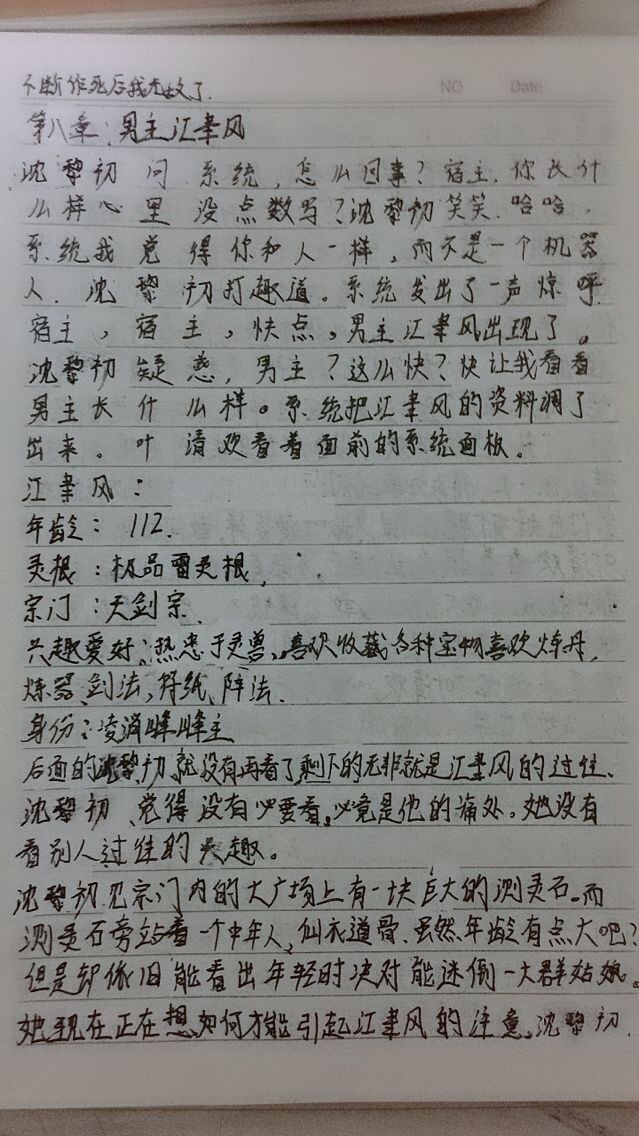 不断作死后我无敌了.
NO Date
第八章:男主江聿风
沈黎初问系统,怎么回事?宿主,你长什
么样心里没点数吗?沈黎初笑笑.哈哈,
系统我觉得你和人一样,而不是一个机器
人.沈黎初打趣道。系统发出了一声惊呼
宿主,宿主,快点,男主江聿风出现了。
沈黎初疑惑,男主?这么快?快让我看看
男主长什么样。系统把江聿风的资料调了
出来。叶清欢看着面前的系统面板。
江聿风:
年龄:112.
灵根:极品雷灵根,
宗门:天剑宗.
兴趣爱好:热忠于灵兽,喜欢收藏各种宝物喜欢炼丹,
炼器,剑法,符纸,阵法.
身份:凌消峰峰主
后面的沈黎初就没有再看了,剩下的无非就是江聿风的过往、
沈黎初觉得没有必要看,必竟是他的痛处。她没有
看别人过往的兴趣。
沈黎初见宗门内的大广场上有一块巨大的测灵石.而
测灵石旁站着一个中年人,仙衣道骨.虽然年龄有点大吧?
但是却依旧能看出年轻时决对能迷倒一大群姑娘。
她现在正在想如何才能引起江聿风的注意,沈黎初.